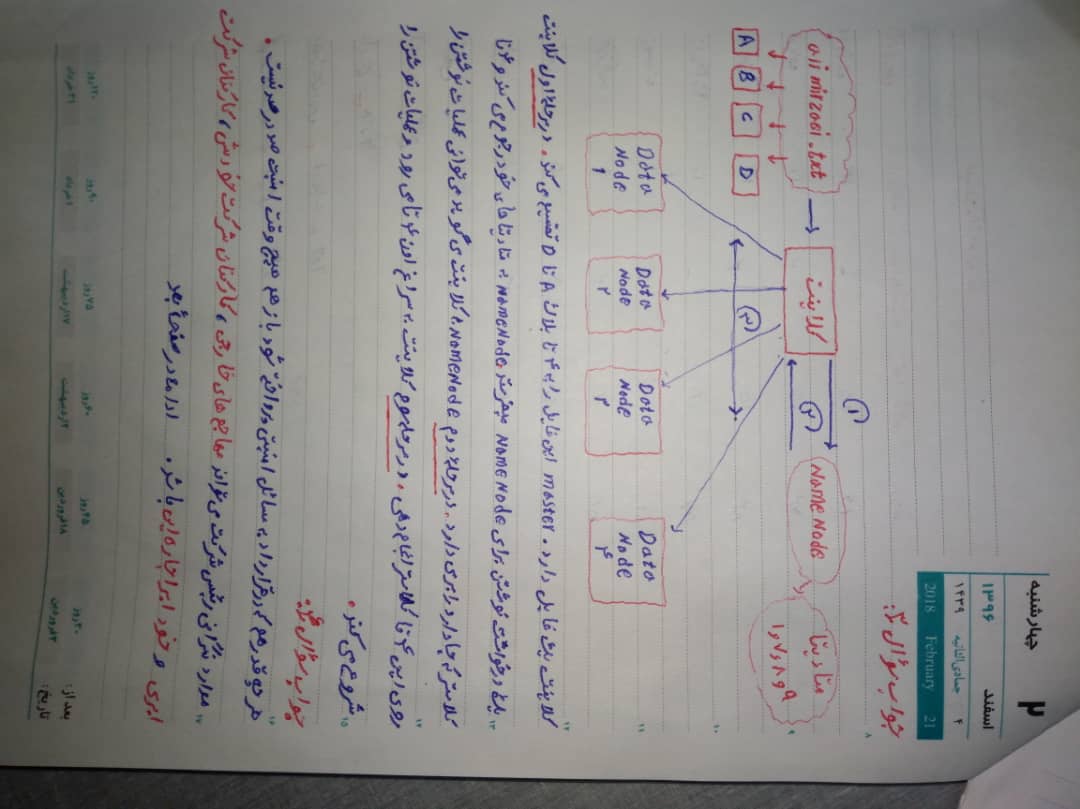 ۲ چهارشنبه
اسفند ۱۳۹۶
۴ جمادی‌الثانیه ۱۴۳۹
2018 February 21
جواب سؤال ۳:
۸
ali mirzaei.txt
کلاینت
۱
۲
NameNode
متادیتا
۹
A B C D
۳
۱۰
Data Node ۱
Data Node ۲
Data Node ۳
Data Node ۴
۱۱
۱۲
کلاینت یک فایل دارد. master این فایل را به ۴ تا بلاک A تا D تقسیم می کند. در مرحله اول کلاینت
۱۳ یک درخواست نوشتن برای NameNode میفرستد NameNode به متادیتا های خود رجوع می کند و ۴ تا
کلاستر که جا دارد را بری دارد. در مرحله دوم NameNode به کلاینت می گوید می توانی عملیات نوشتن را
۱۴ روی این ۴ تا کلاستر انجام دهی. در مرحله سوم کلاینت به سراغ اون ۴ تا می رود و عملیات نوشتن را
۱۵ شروع می کند.
جواب سؤال ۴:
۱۶
هر چه قدر هم که در قرارداد به مسائل امنیتی پرداخته شود باز هم هیچ وقت امنیت صد در صد نیست.
۱۷ موارد نگرانی رئیس شرکت می تواند مهاجم های خارجی، کارکنان شرکت خودش، کارکنان شرکت
ابری و خود ابر اجاره ایی باشد. ادامه در صفحهٔ بعد
بعد از: ۳۰روز ۴۵روز ۶۰روز ۷۵روز ۹۰روز ۱۲۰روز
تاریخ: ۳فروردین ۱۸فروردین ۲اردیبهشت ۱۷اردیبهشت ۱خرداد ۳۱خرداد